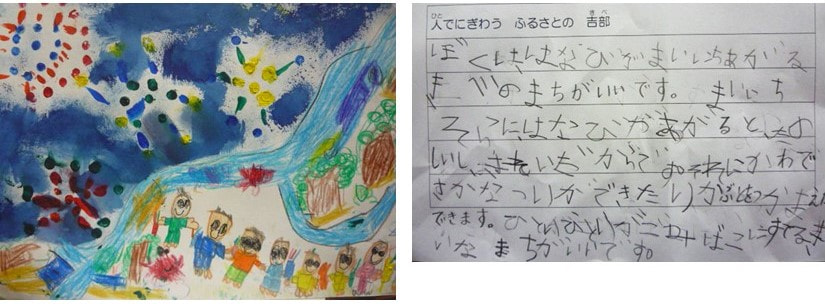 人でにぎわう ふるさとの 吉部
ぼくははなびがまいいちあがる
のまちがいいです。 まいいち
そらにはなびがあがるとたの
しいし、きれいだからで それにかわで
さかなつりができたり
できます。 ごみばこにすてる、き
いな まちがいいです。